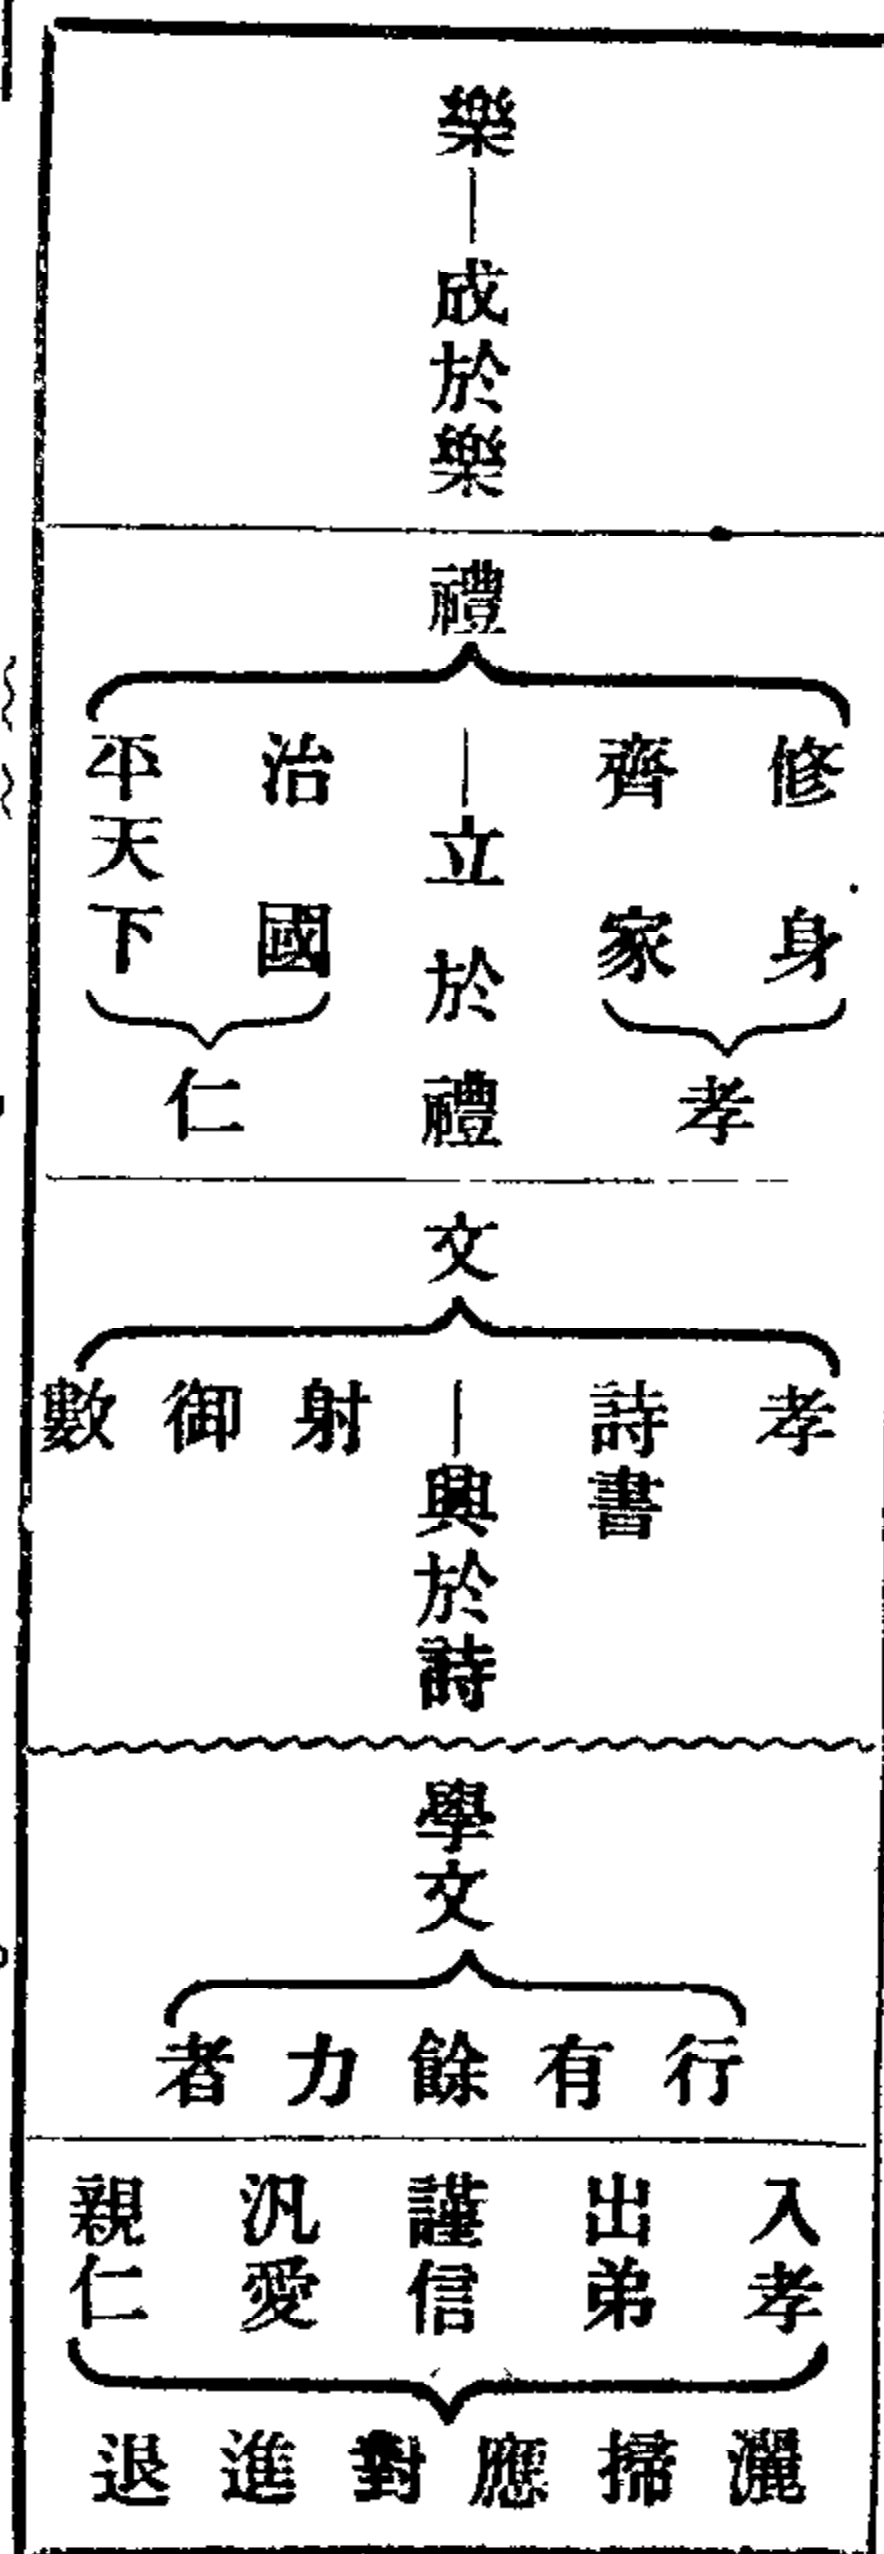 樂
—成於樂
禮
修身
齊家
—立於禮
治國
平天下
孝
仁
文
孝
詩書
—興於詩
射
御
數
學文
行有餘力者
入孝
出弟
謹信
汎愛
親仁
灑掃應對進退